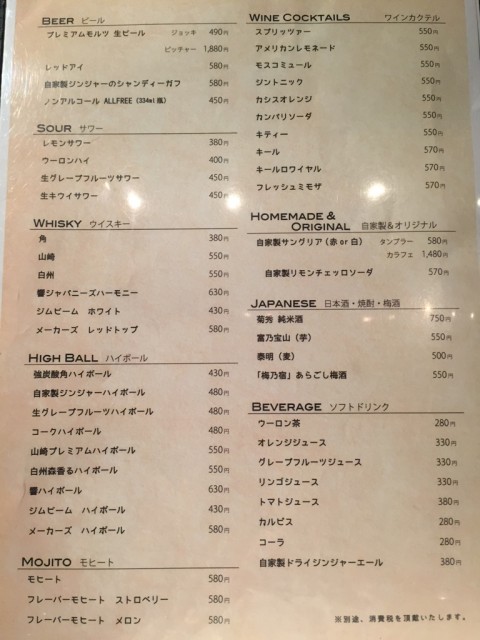 BEER ビール
プレミアムモルツ 生ビール ジョッキ 490円
ピッチャー 1,880円
レッドアイ 580円
自家製ジンジャーのシャンディーガフ 580円
ノンアルコール ALLFREE (334ml瓶) 450円
SOUR サワー
レモンサワー 380円
ウーロンハイ 400円
生グレープフルーツサワー 450円
生キウイサワー 450円
WHISKY ウイスキー
角 380円
山崎 550円
白州 550円
響ジャパニーズハーモニー 630円
ジムビーム ホワイト 430円
メーカーズ レッドトップ 580円
HIGH BALL ハイボール
強炭酸角ハイボール 430円
自家製ジンジャーハイボール 480円
生グレープフルーツハイボール 480円
コークハイボール 480円
山崎プレミアムハイボール 550円
白州森香るハイボール 550円
響ハイボール 630円
ジムビーム ハイボール 430円
メーカーズ ハイボール 580円
MOJITO モヒート
モヒート 580円
フレーバーモヒート ストロベリー 580円
フレーバーモヒート メロン 580円
WINE COCKTAILS ワインカクテル
スプリッツァー 550円
アメリカンレモネード 550円
モスコミュール 550円
ジントニック 550円
カシスオレンジ 550円
カンパリソーダ 550円
キティー 550円
キール 570円
キールロワイヤル 570円
フレッシュミモザ 570円
HOMEMADE &
ORIGINAL 自家製&オリジナル
自家製サングリア (赤 or 白) タンブラー 580円
カラフェ 1,480円
自家製リモンチェッロソーダ 570円
JAPANESE 日本酒・焼酎・梅酒
菊秀 純米酒 750円
富乃宝山 (芋) 550円
泰明 (麦) 500円
「梅乃宿」あらごし梅酒 550円
BEVERAGE ソフトドリンク
ウーロン茶 280円
オレンジジュース 330円
グレープフルーツジュース 330円
リンゴジュース 330円
トマトジュース 380円
カルピス 280円
コーラ 280円
自家製ドライジンジャーエール 380円
※別途、消費税を頂戴いたします。